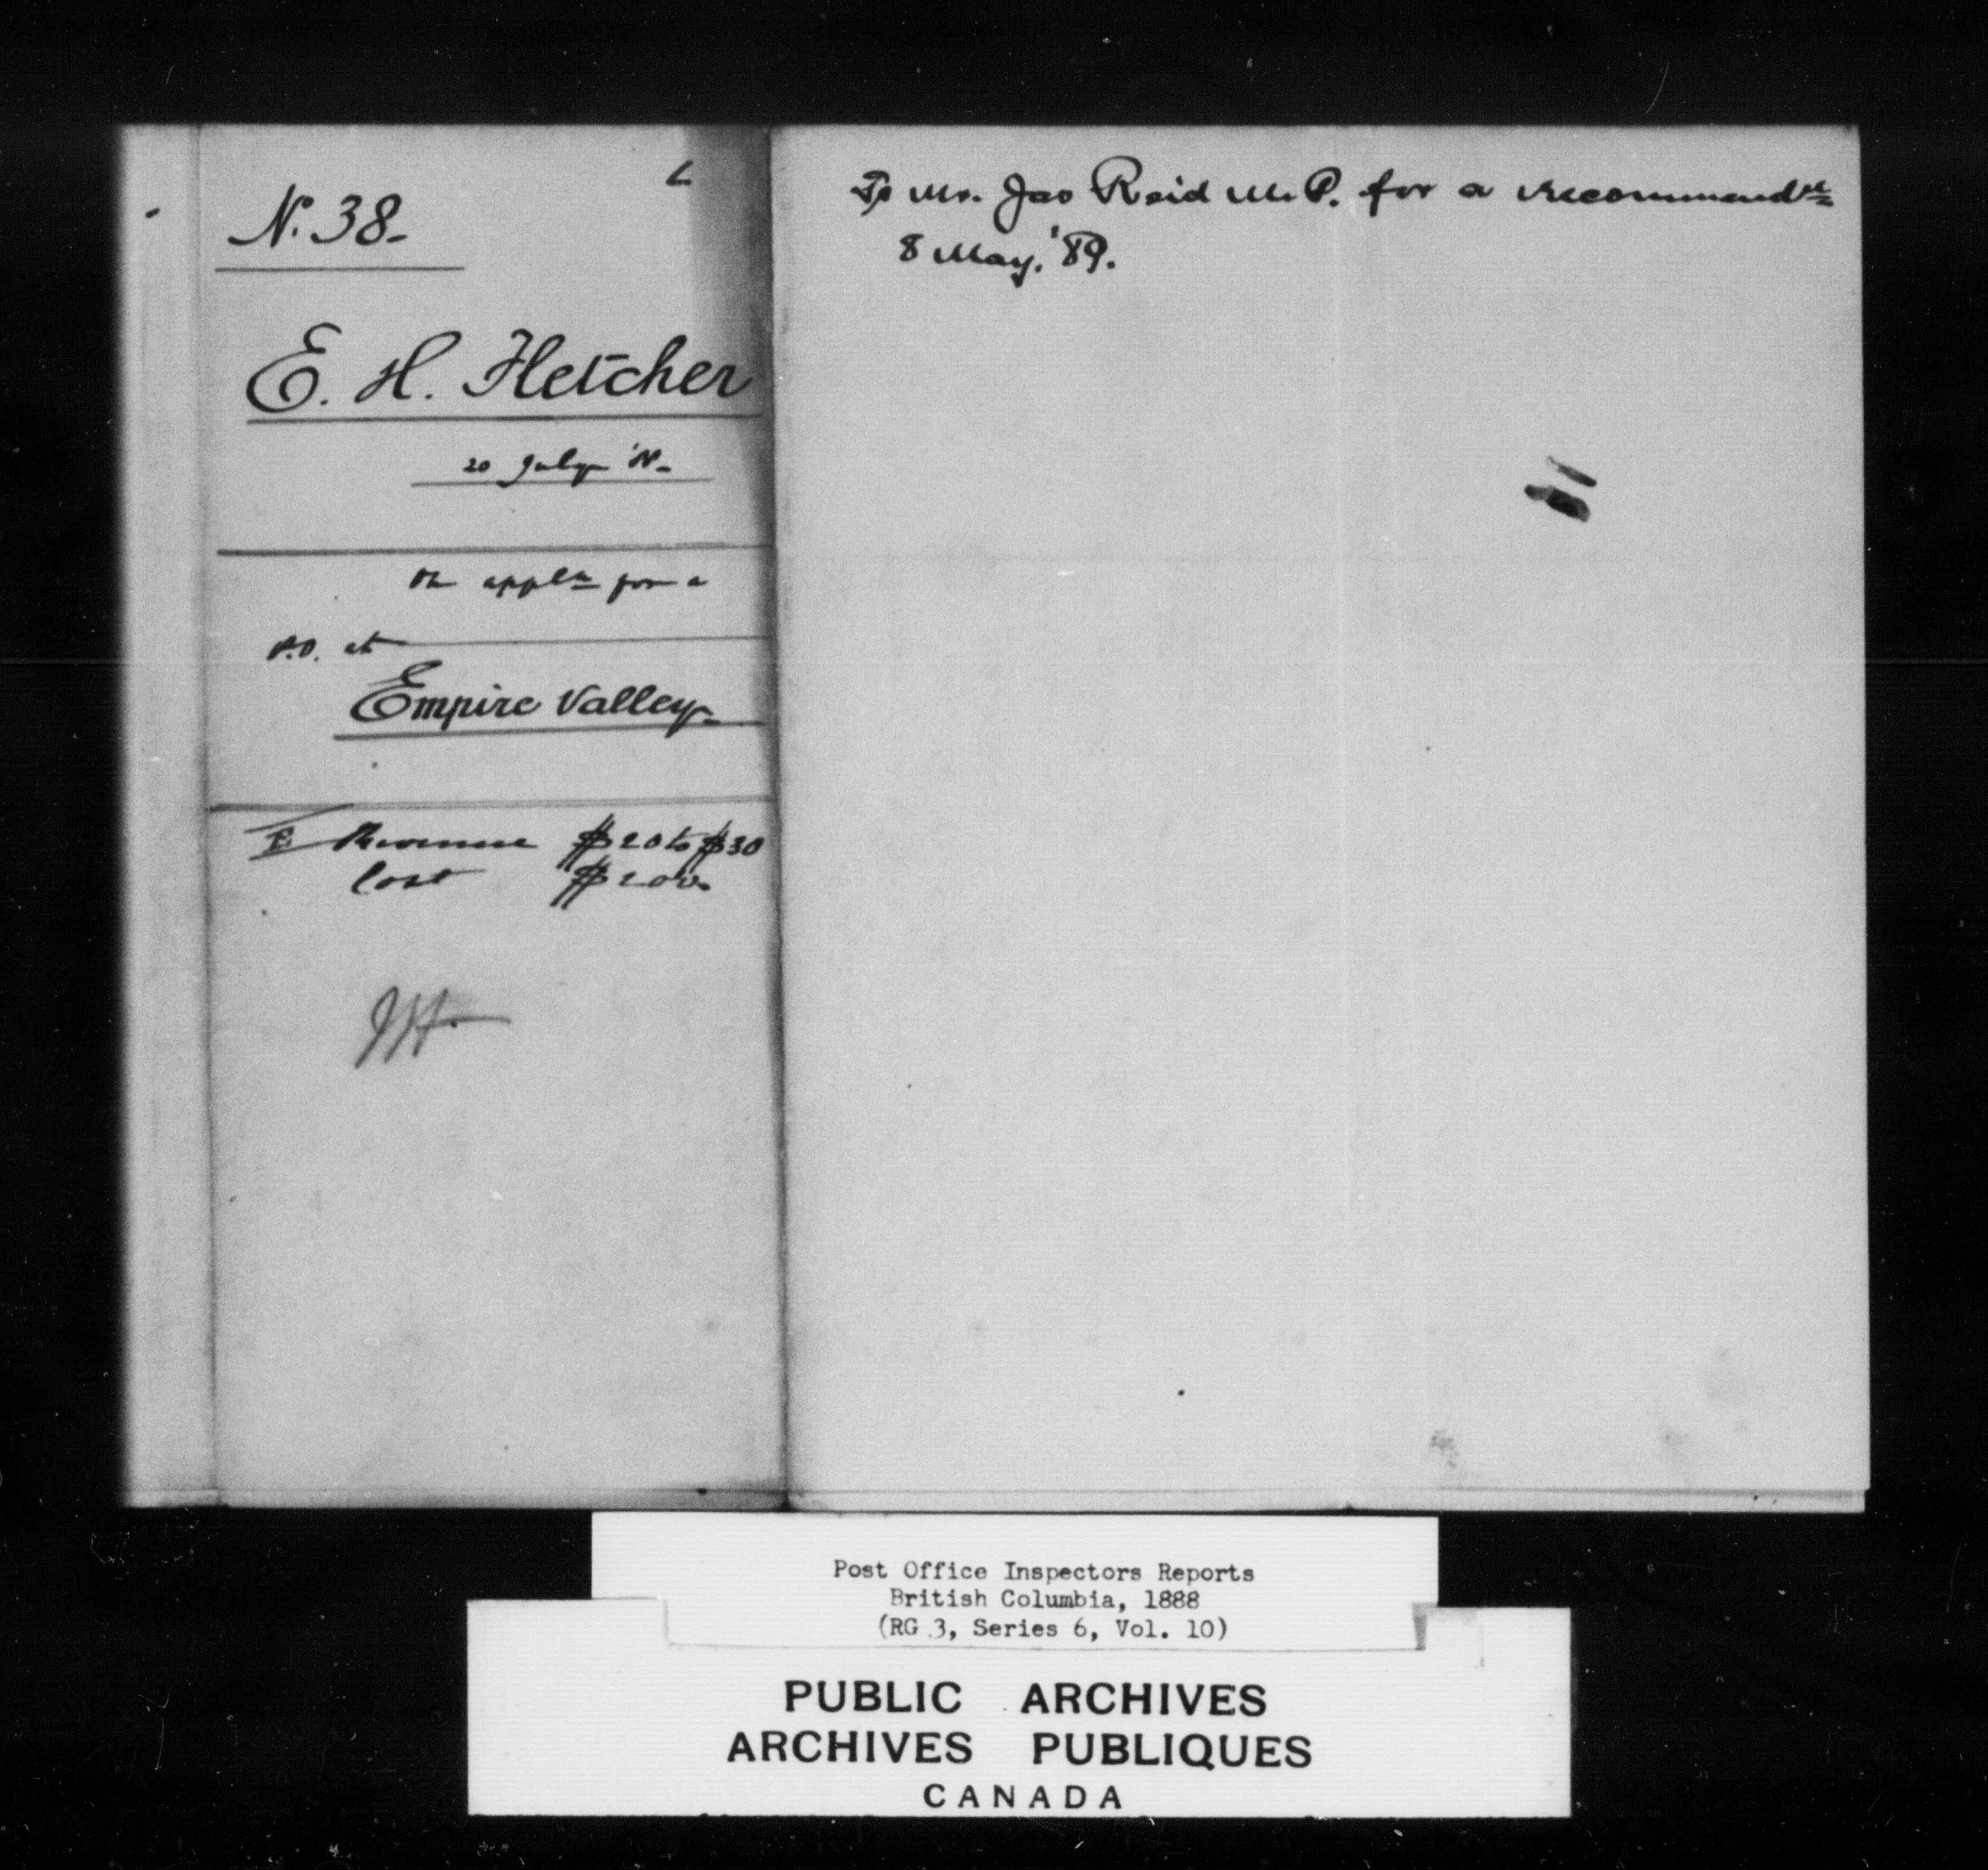 N. 38-
E. H. Fletcher
20 July
On appln for a
P.O. at
Empire Valley
Revenue $20 to $30
Cost $200.
To Mr. Jas Reid M.P. for a recommendn
8 May, '89.
Post Office Inspectors Reports
British Columbia, 1888
(RG 3, Series 6, Vol. 10)
PUBLIC ARCHIVES
ARCHIVES PUBLIQUES
CANADA